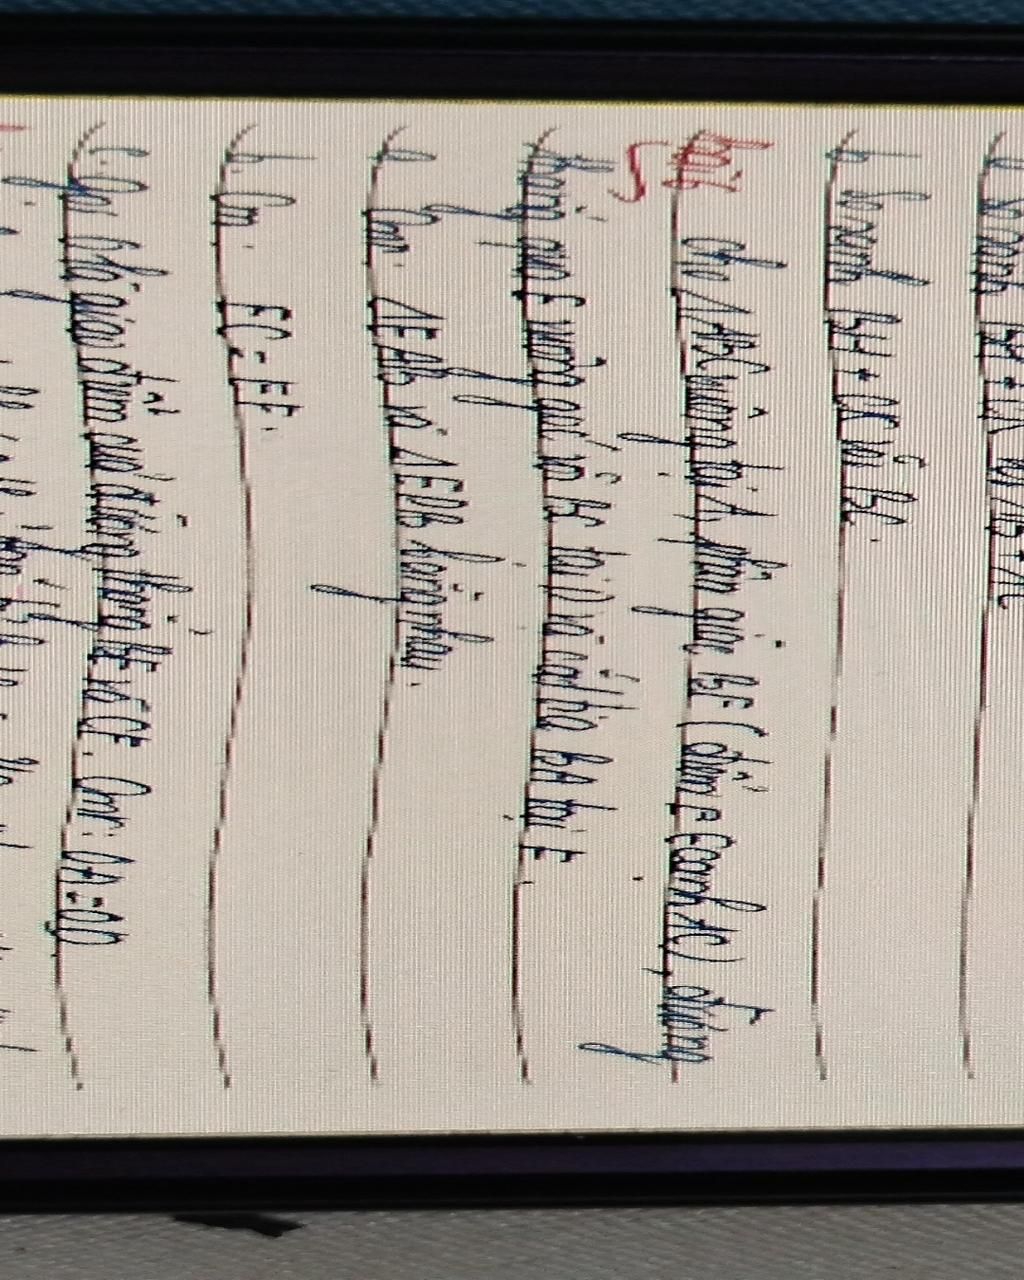 a. So sánh BH + CK và AB + AC
b. So sánh BH + CK và BC.
Bài 5 Cho ΔABC vuông tại A, phân giác BE (điểm E ∈ cạnh AC), đường
thẳng qua E vuông góc với BC tại D và cắt tia BA tại F.
a. Cmr: ΔEAB và ΔEDB bằng nhau.
b. Cm: EC = EF.
c. Gọi O là giao điểm của đường thẳng BE và CF. Cmr: OA = OD